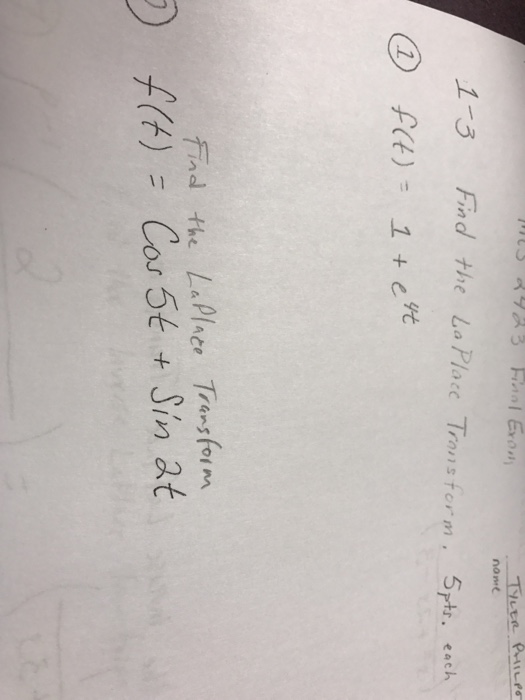 2423 Final Exam
TYLER
name
1-3 Find the LaPlace Transform. 5pts. each
① f(t) = 1 + e^4t
Find the LaPlace Transform
f(t) = Cos 5t + Sin 2t